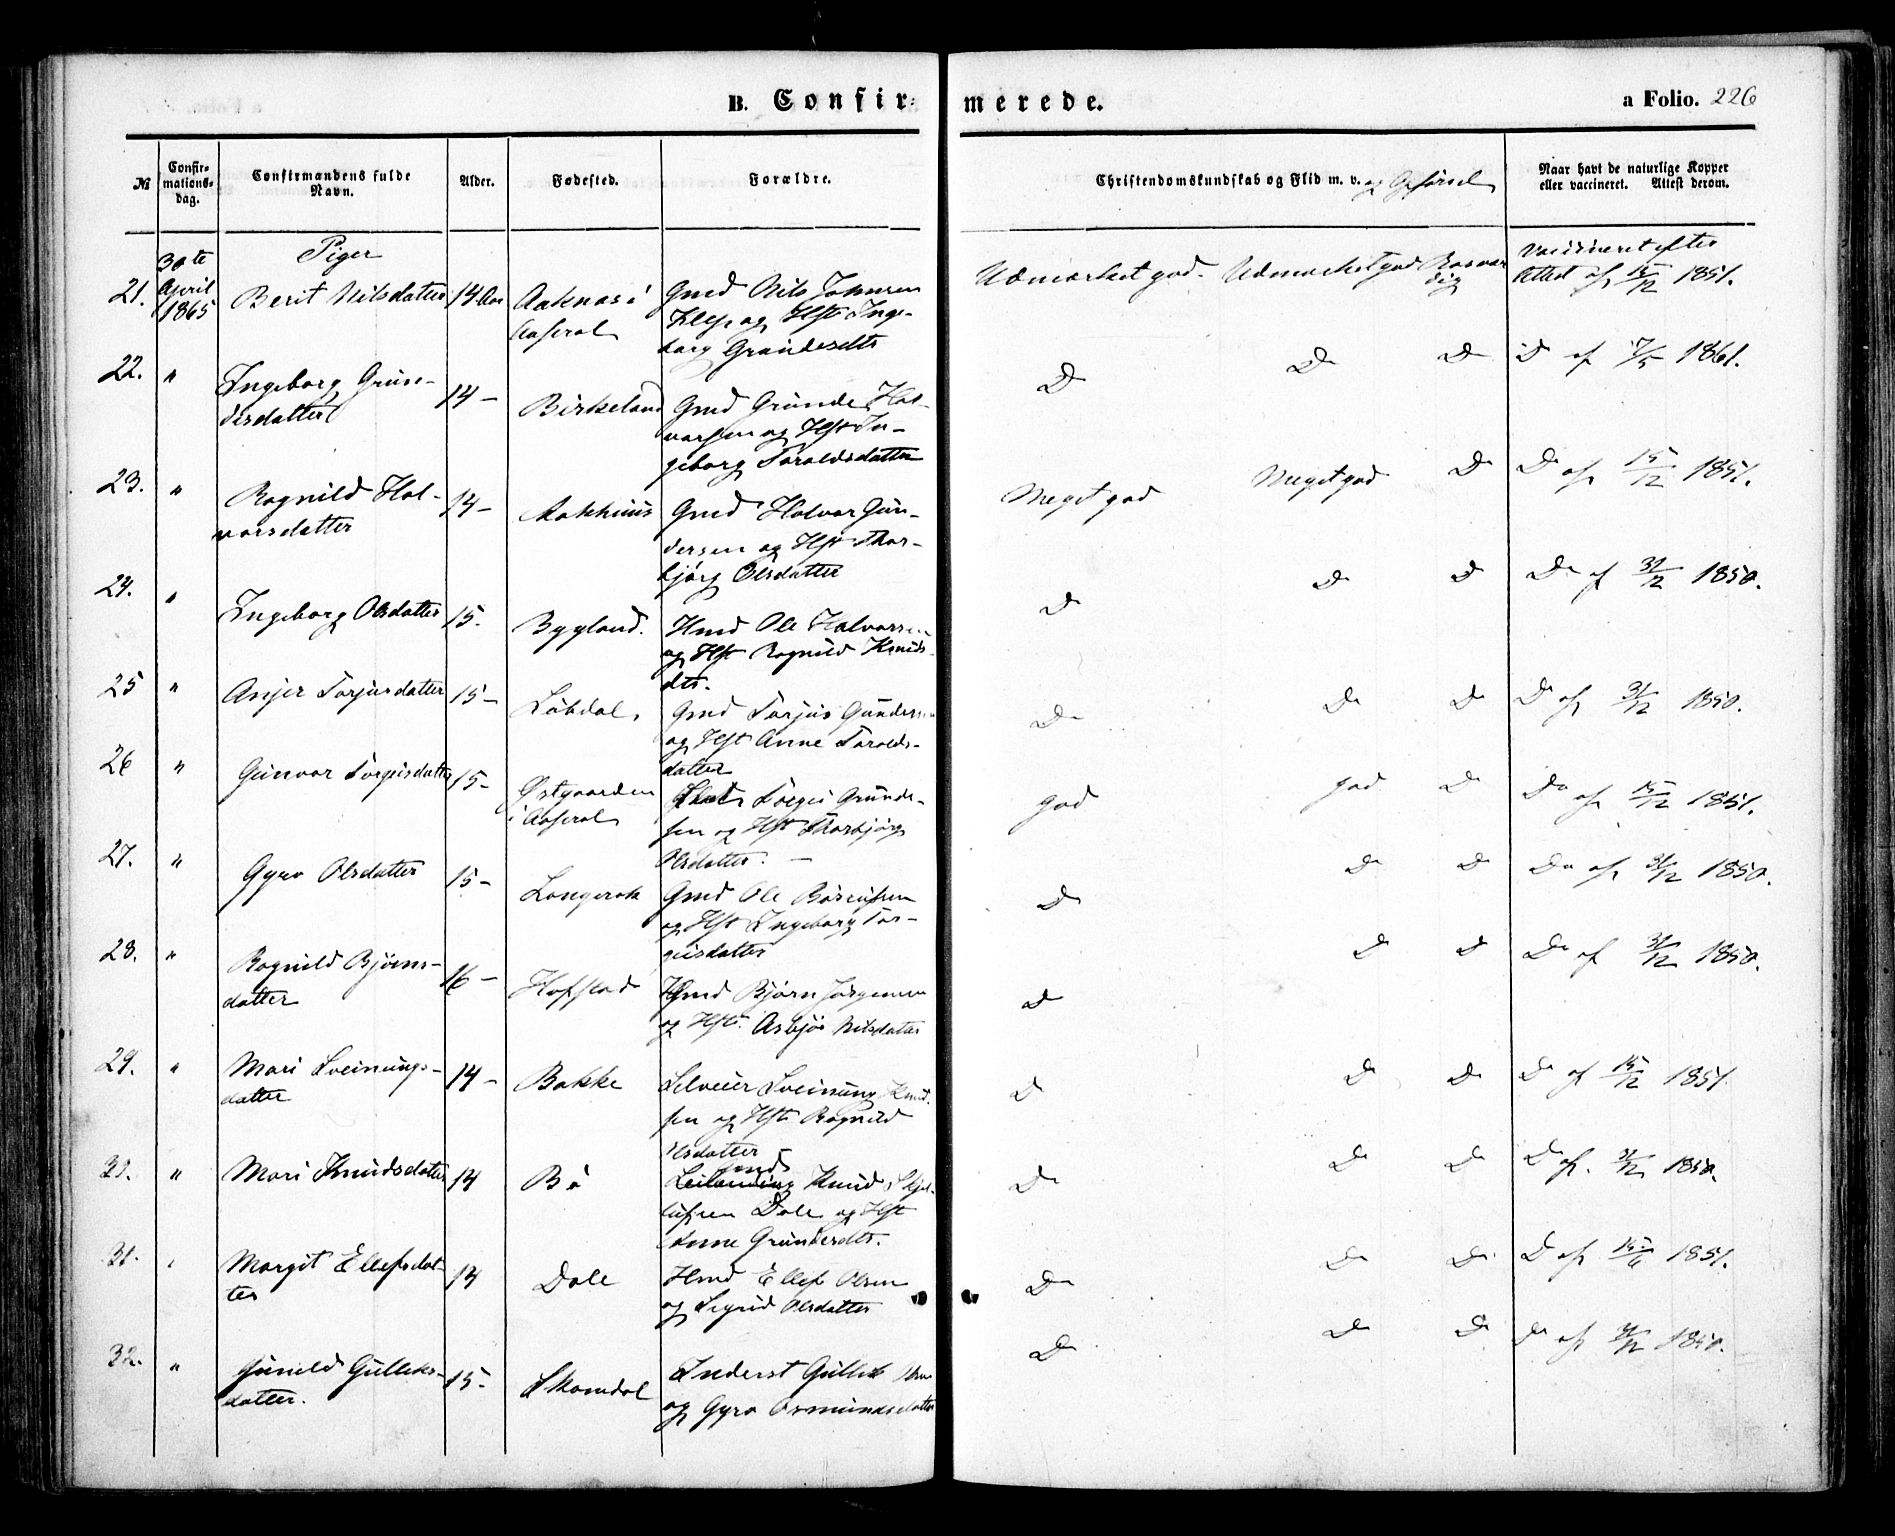 B. Confir-
merede.
a Folio. 226
No
Confir-
mations-
dag.
Confirmandens fulde
Navn.
Alder.
Fødested.
Forældre.
Christendomskundskab og Flid m. v. og Opførsel
Naar havt de naturlige Kopper
eller vaccineret. Attest derom.
30te
April
1865
Piger
21.
Berit Nilsdatter
14 Aar
Aaknæs i
Aaseral
Gmd Nils Johnsen
og Hst Inge-
borg Grundesdtr
Udmærket god.
Udmærket god
Vaccineret efter
Attest af 15/12 1851.
22. "
Ingeborg Grun-
desdatter
14 -
Birkeland
Gmd Grunde Hal-
vorsen og Hst In-
geborg Taraldsdatter
Do
Do
Do
Do af 17/5 1861.
23. "
Ragnild Hal-
vorsdatter
14 -
Gmd Halvor Gun-
dersen og Hst Thor-
bjørg Olsdatter
Meget god
Meget god
Do
Do af 15/12 1851.
24. "
Ingeborg Olsdatter
15.
Bygland.
Hmd Ole Halvorsen
og Hst Ragnild Knuds-
dtr.
Do
Do
Do
Do af 31/12 1850.
25 "
Anjer Torjusdatter
15 -
Løbdal.
Gmd Torjus Gundersen
og Hst Anne Taralds-
datter
Do
Do
Do
Do af 31/12 1850.
26 "
Gunvor Torgeisdatter
15 -
Østgaarden
i Aaseral
Grunde-
sen og Hst Thorbjørg
Olsdatter. -
god
god
Do
Do af 15/12 1851.
27. "
Gyro Olsdatter
15 -
Langerak
Gmd Ole
og Hst Ingeborg Tor-
geisdatter
Do
Do
Do
Do af 31/12 1850.
28. "
Ragnild Bjørns-
datter
16 -
Hofstad
Gmd Bjørn Jørgensen
og Hst. Asbjør Nilsdatter
Do
Do
Do
Do af 31/12 1850.
29. "
Mari Sveinungs-
datter
14 -
Bakke
Selveier Sveinung Knud-
sen og Hst Ragnild
Olsdatter
Do
Do
Do
Do af 15/12 1851.
30. "
Mari Knudsdatter
14
Bø
Knud
Dale og Hst
Anne Grundesdtr.
Do
Do
Do
Do af. 31/12 1850.
31. "
Margit Ellefsdat-
ter
14
Dale
Hmd Ellef Olsen
og Sigrid Olsdatter
Do
Do
Do
Do af 15/6 1851.
32. "
Gunild Gulleks-
datter.
15 -
Skomdal
Inderst Gullek
og Gyro Osmundsdatter
Do
Do
Do
Do af 31/12 1850.